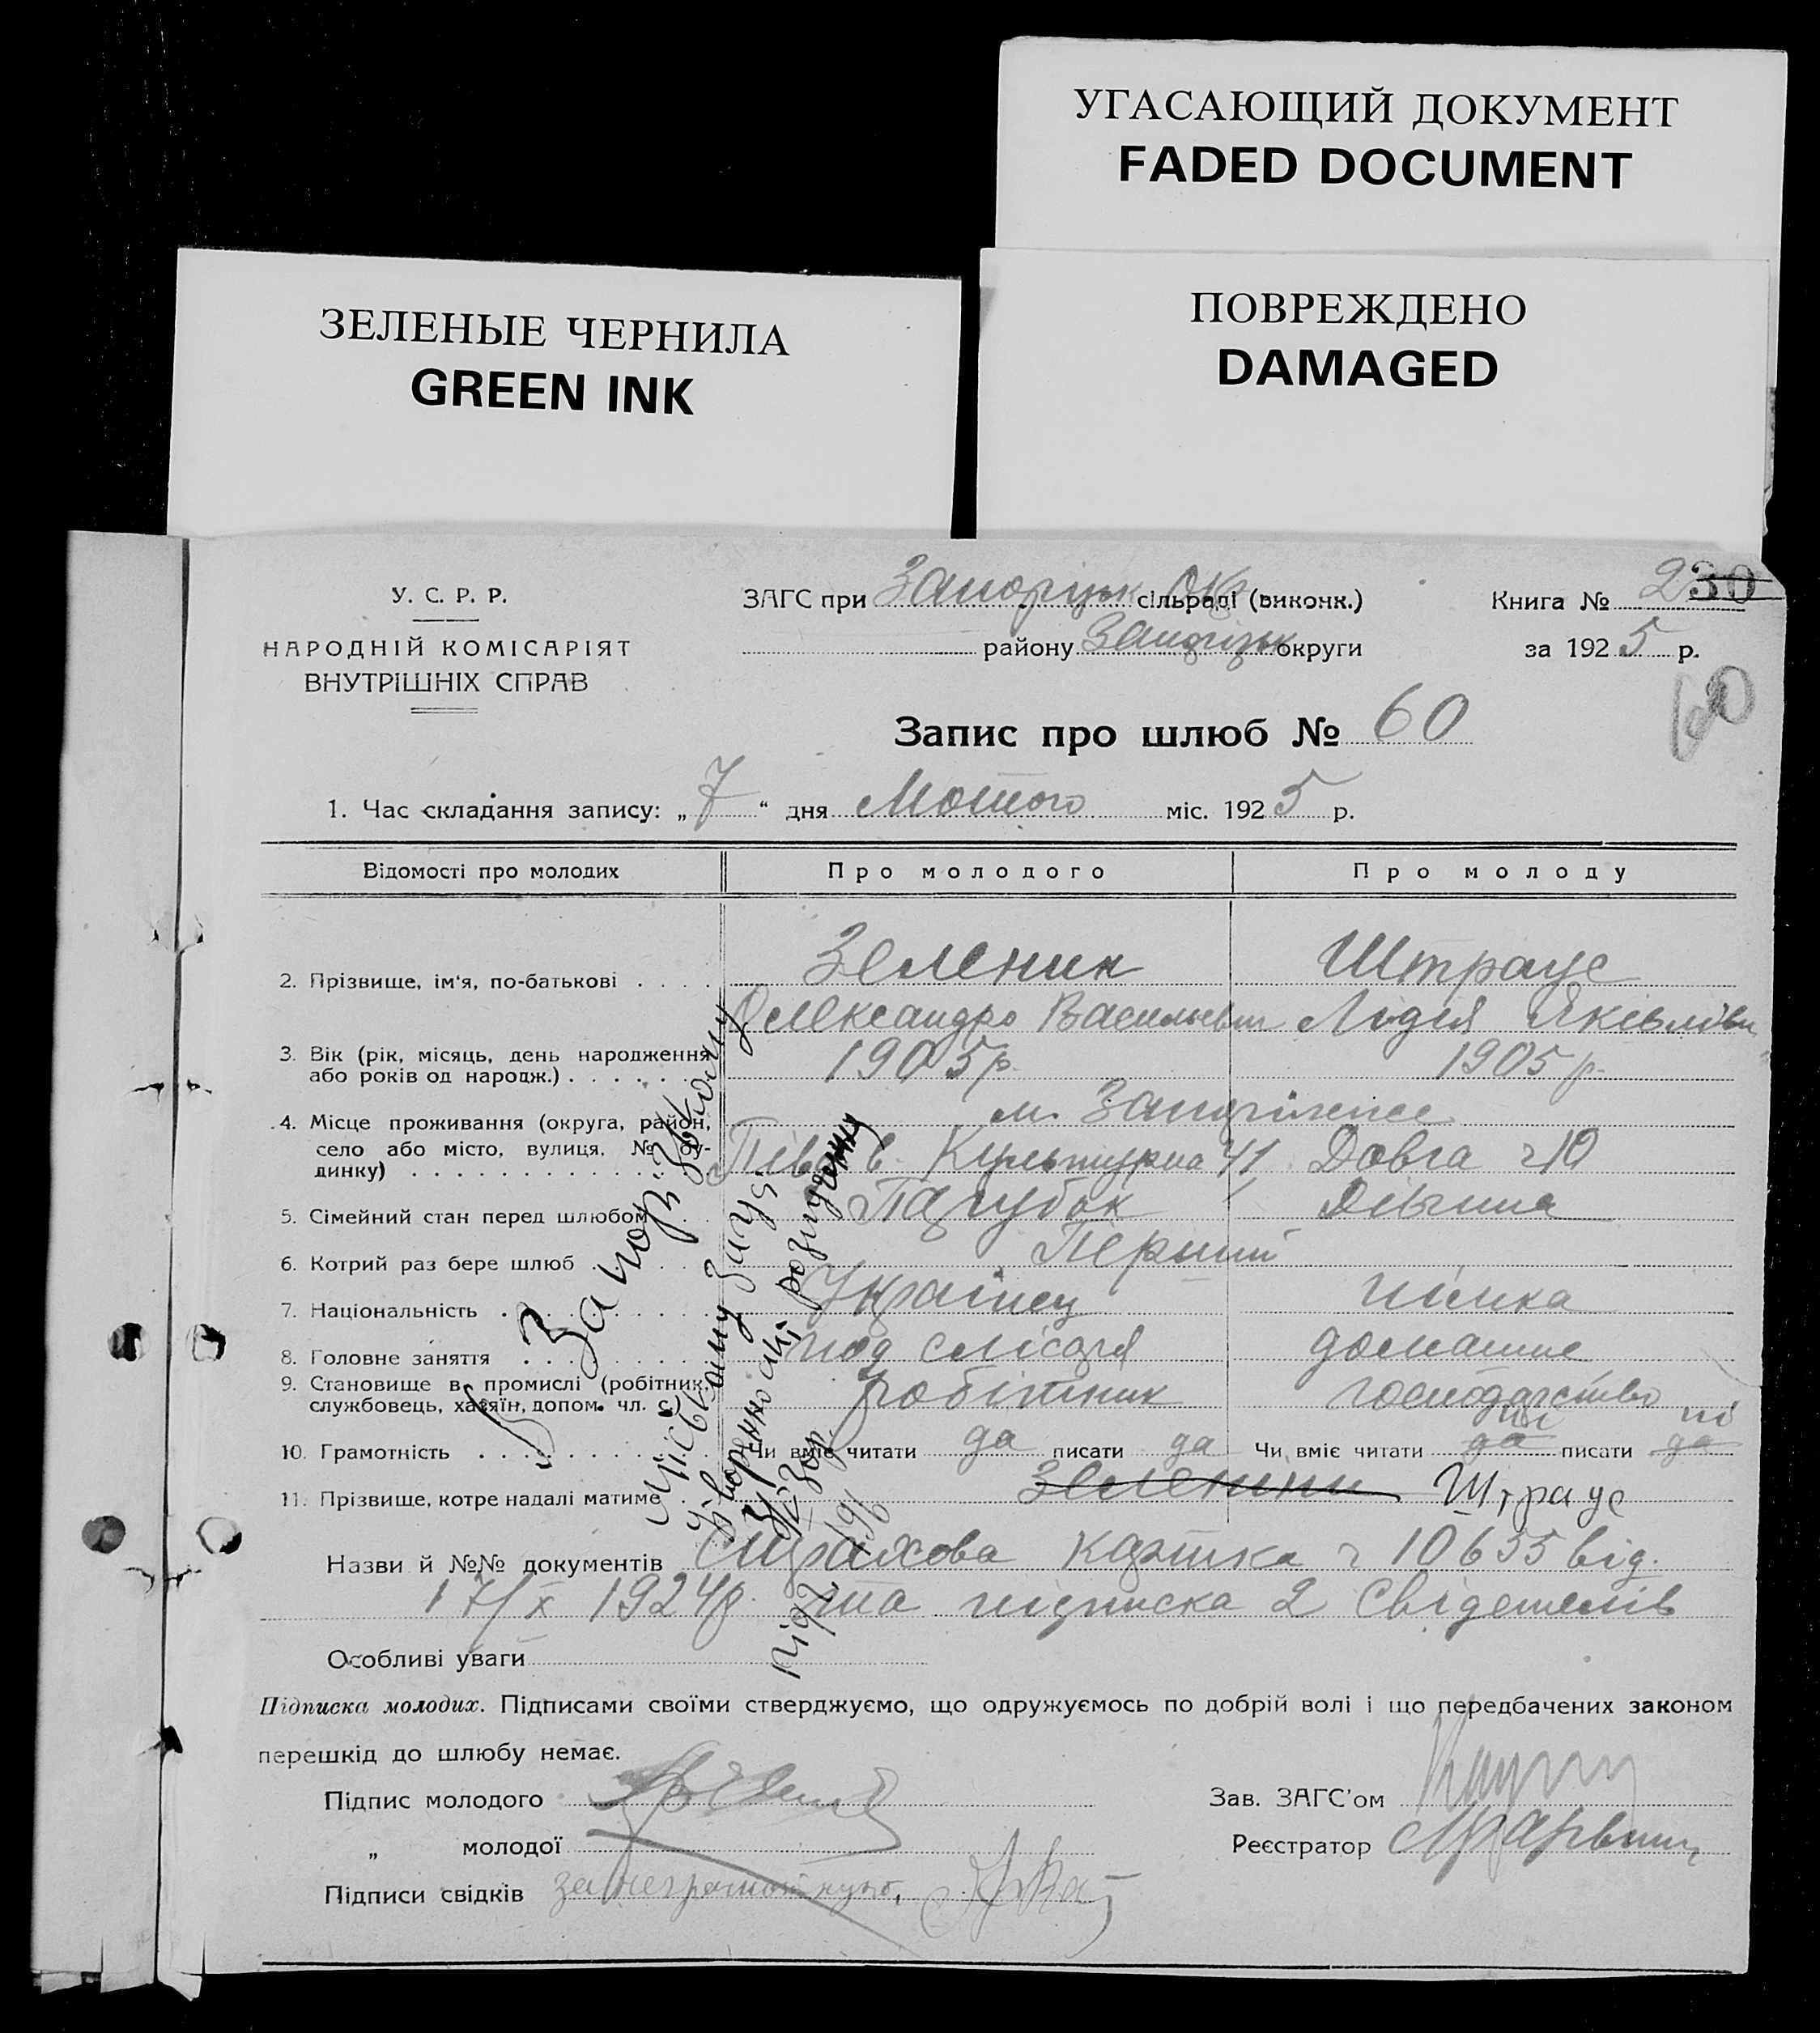 УГАСАЮЩИЙ ДОКУМЕНТ
FADED DOCUMENT
ЗЕЛЕНЫЕ ЧЕРНИЛА
GREEN INK
ПОВРЕЖДЕНО
DAMAGED
У. С. Р. Р.
НАРОДНІЙ КОМІСАРІЯТ
ВНУТРІШНІХ СПРАВ
ЗАГС при Запоріцьк Окр. сільраді (виконк.)
району Запоріцьк округи
Книга № 2 30
за 1925 р.
60
Запис про шлюб № 60
1. Час складання запису: „7“ дня Лютого міс. 1925 р.
Відомості про молодих Про молодого Про молоду
2. Прізвище, ім'я, по-батькові . . . . Зеленин Штраус
Олександро Васильевич Лідія Яківлівн
3. Вік (рік, місяць, день народження або років од народж.) . . . . . . 1905 р. 1905 р.
4. Місце проживання (округа, район, село або місто, вулиця, № бу-динку) . . . . . . . . . . . . м. Запоріжжє
Культурна 41 Довга ч 10
5. Сімейний стан перед шлюбом Парубок Дівчина
6. Котрий раз бере шлюб . Перший
7. Національність . . . . . . . . . Українец німка
8. Головне заняття . . . . . . . . слісаря домашнє
9. Становище в промислі (робітник, службовець, хазяїн, допом. чл. с.) робітник господарство
10. Грамотність . . . . . . . . . . . Чи вміє читати да писати да Чи вміє читати да ні писати да ні
11. Прізвище, котре надалі матиме . Зеленини Штраус
Назви й №№ документів Страхова картка ч 10655 від.
17/X 1924р. та підписка 2 свідетелів
Особливі уваги
Підписка молодих. Підписами своїми стверджуємо, що одружуємось по добрій волі і що передбачених законом
перешкід до шлюбу немає.
Підпис молодого
„ молодої
Підписи свідків за неграмотную,
Зав. ЗАГС'ом
Реєстратор
Запоріз.
Міському Загсі
розлучення